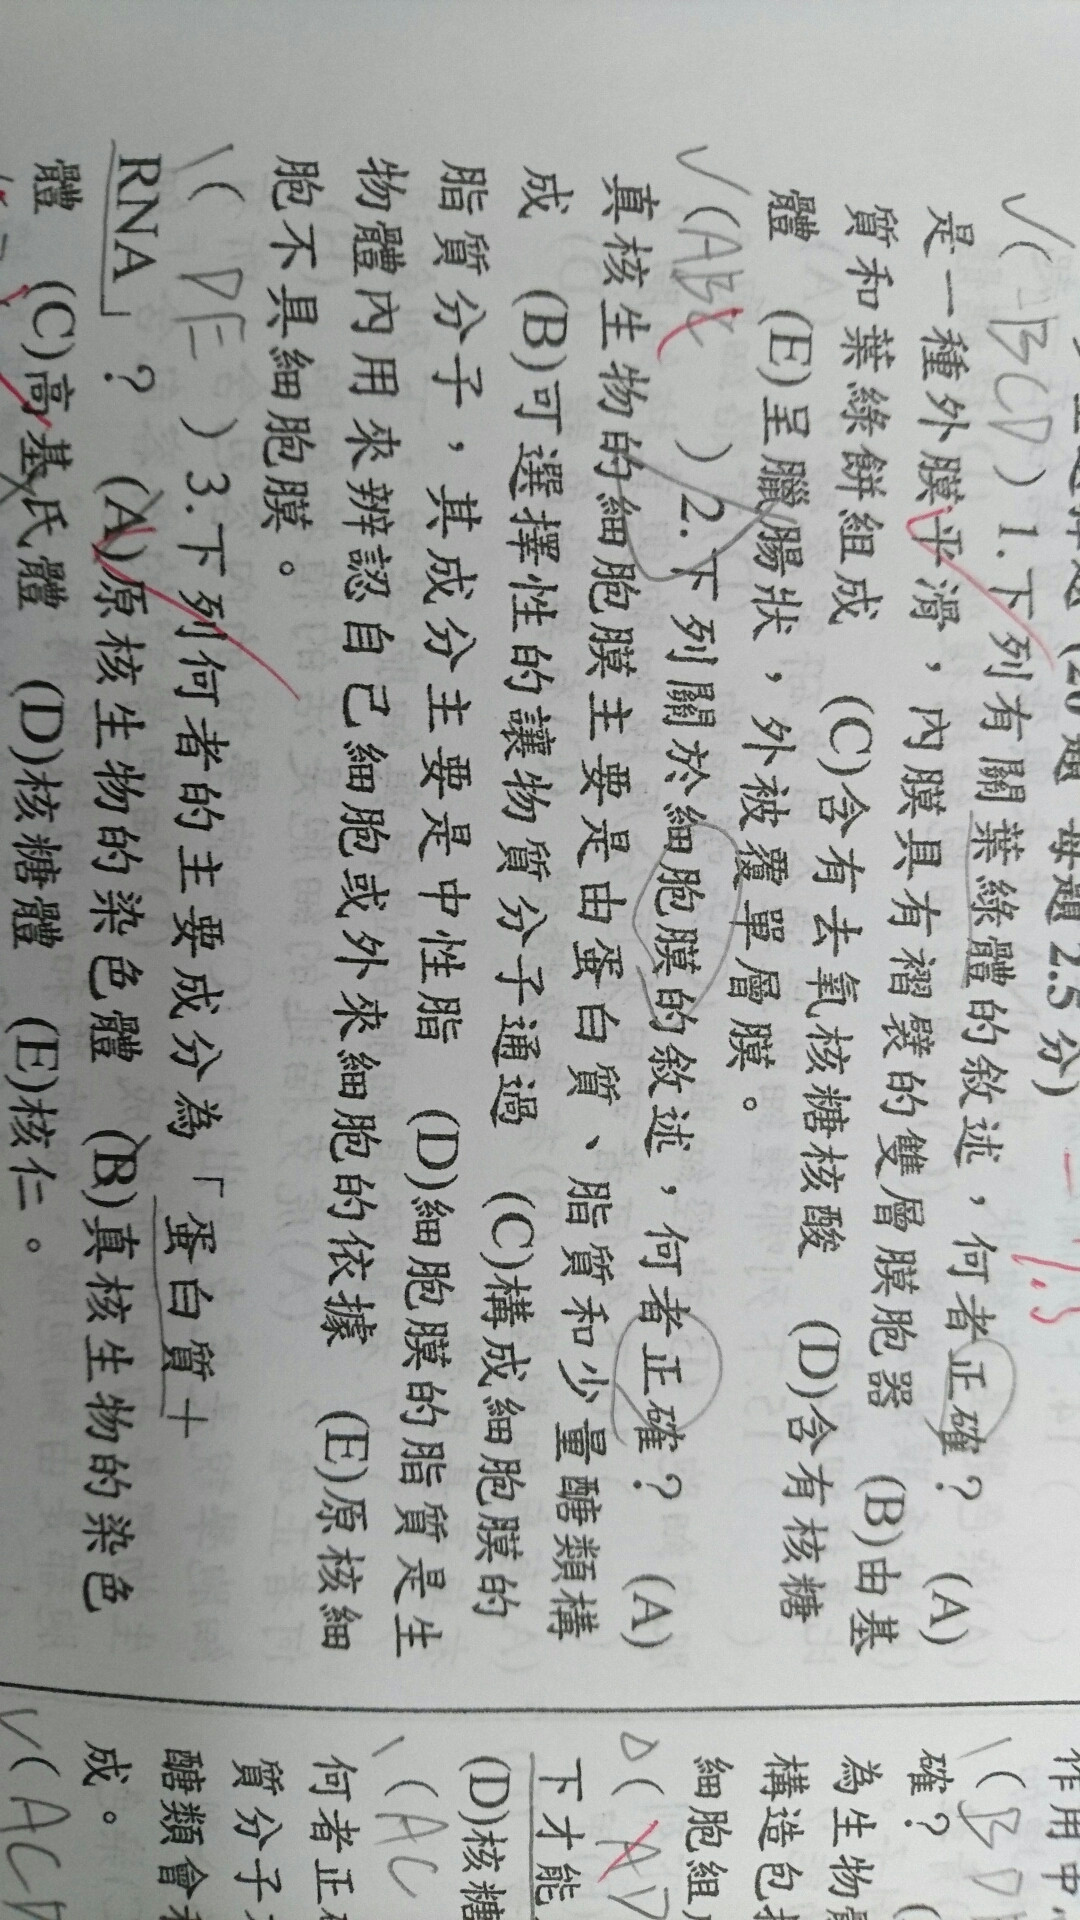 (20題 每題2.5分)
(BCD) 1.下列有關葉綠體的敘述，何者正確？ (A)
是一種外膜平滑，內膜具有褶襞的雙層膜胞器 (B)由基
質和葉綠餅組成 (C)含有去氧核糖核酸 (D)含有核糖
體 (E)呈臘腸狀，外被覆單層膜。
(AB ) 2.下列關於細胞膜的敘述，何者正確？ (A)
真核生物的細胞膜主要是由蛋白質、脂質和少量醣類構
成 (B)可選擇性的讓物質分子通過 (C)構成細胞膜的
脂質分子，其成分主要是中性脂 (D)細胞膜的脂質是生
物體內用來辨認自己細胞或外來細胞的依據 (E)原核細
胞不具細胞膜。
( DE ) 3.下列何者的主要成分為「蛋白質＋
RNA」？ (A)原核生物的染色體 (B)真核生物的染色
體 (C)高基氏體 (D)核糖體 (E)核仁。
作用中
(BD
確？
為生物
構造包
細胞組
(AD
下才能
(D)核糖
(AC
何者正
質分子
醣類會
成。
(ACD